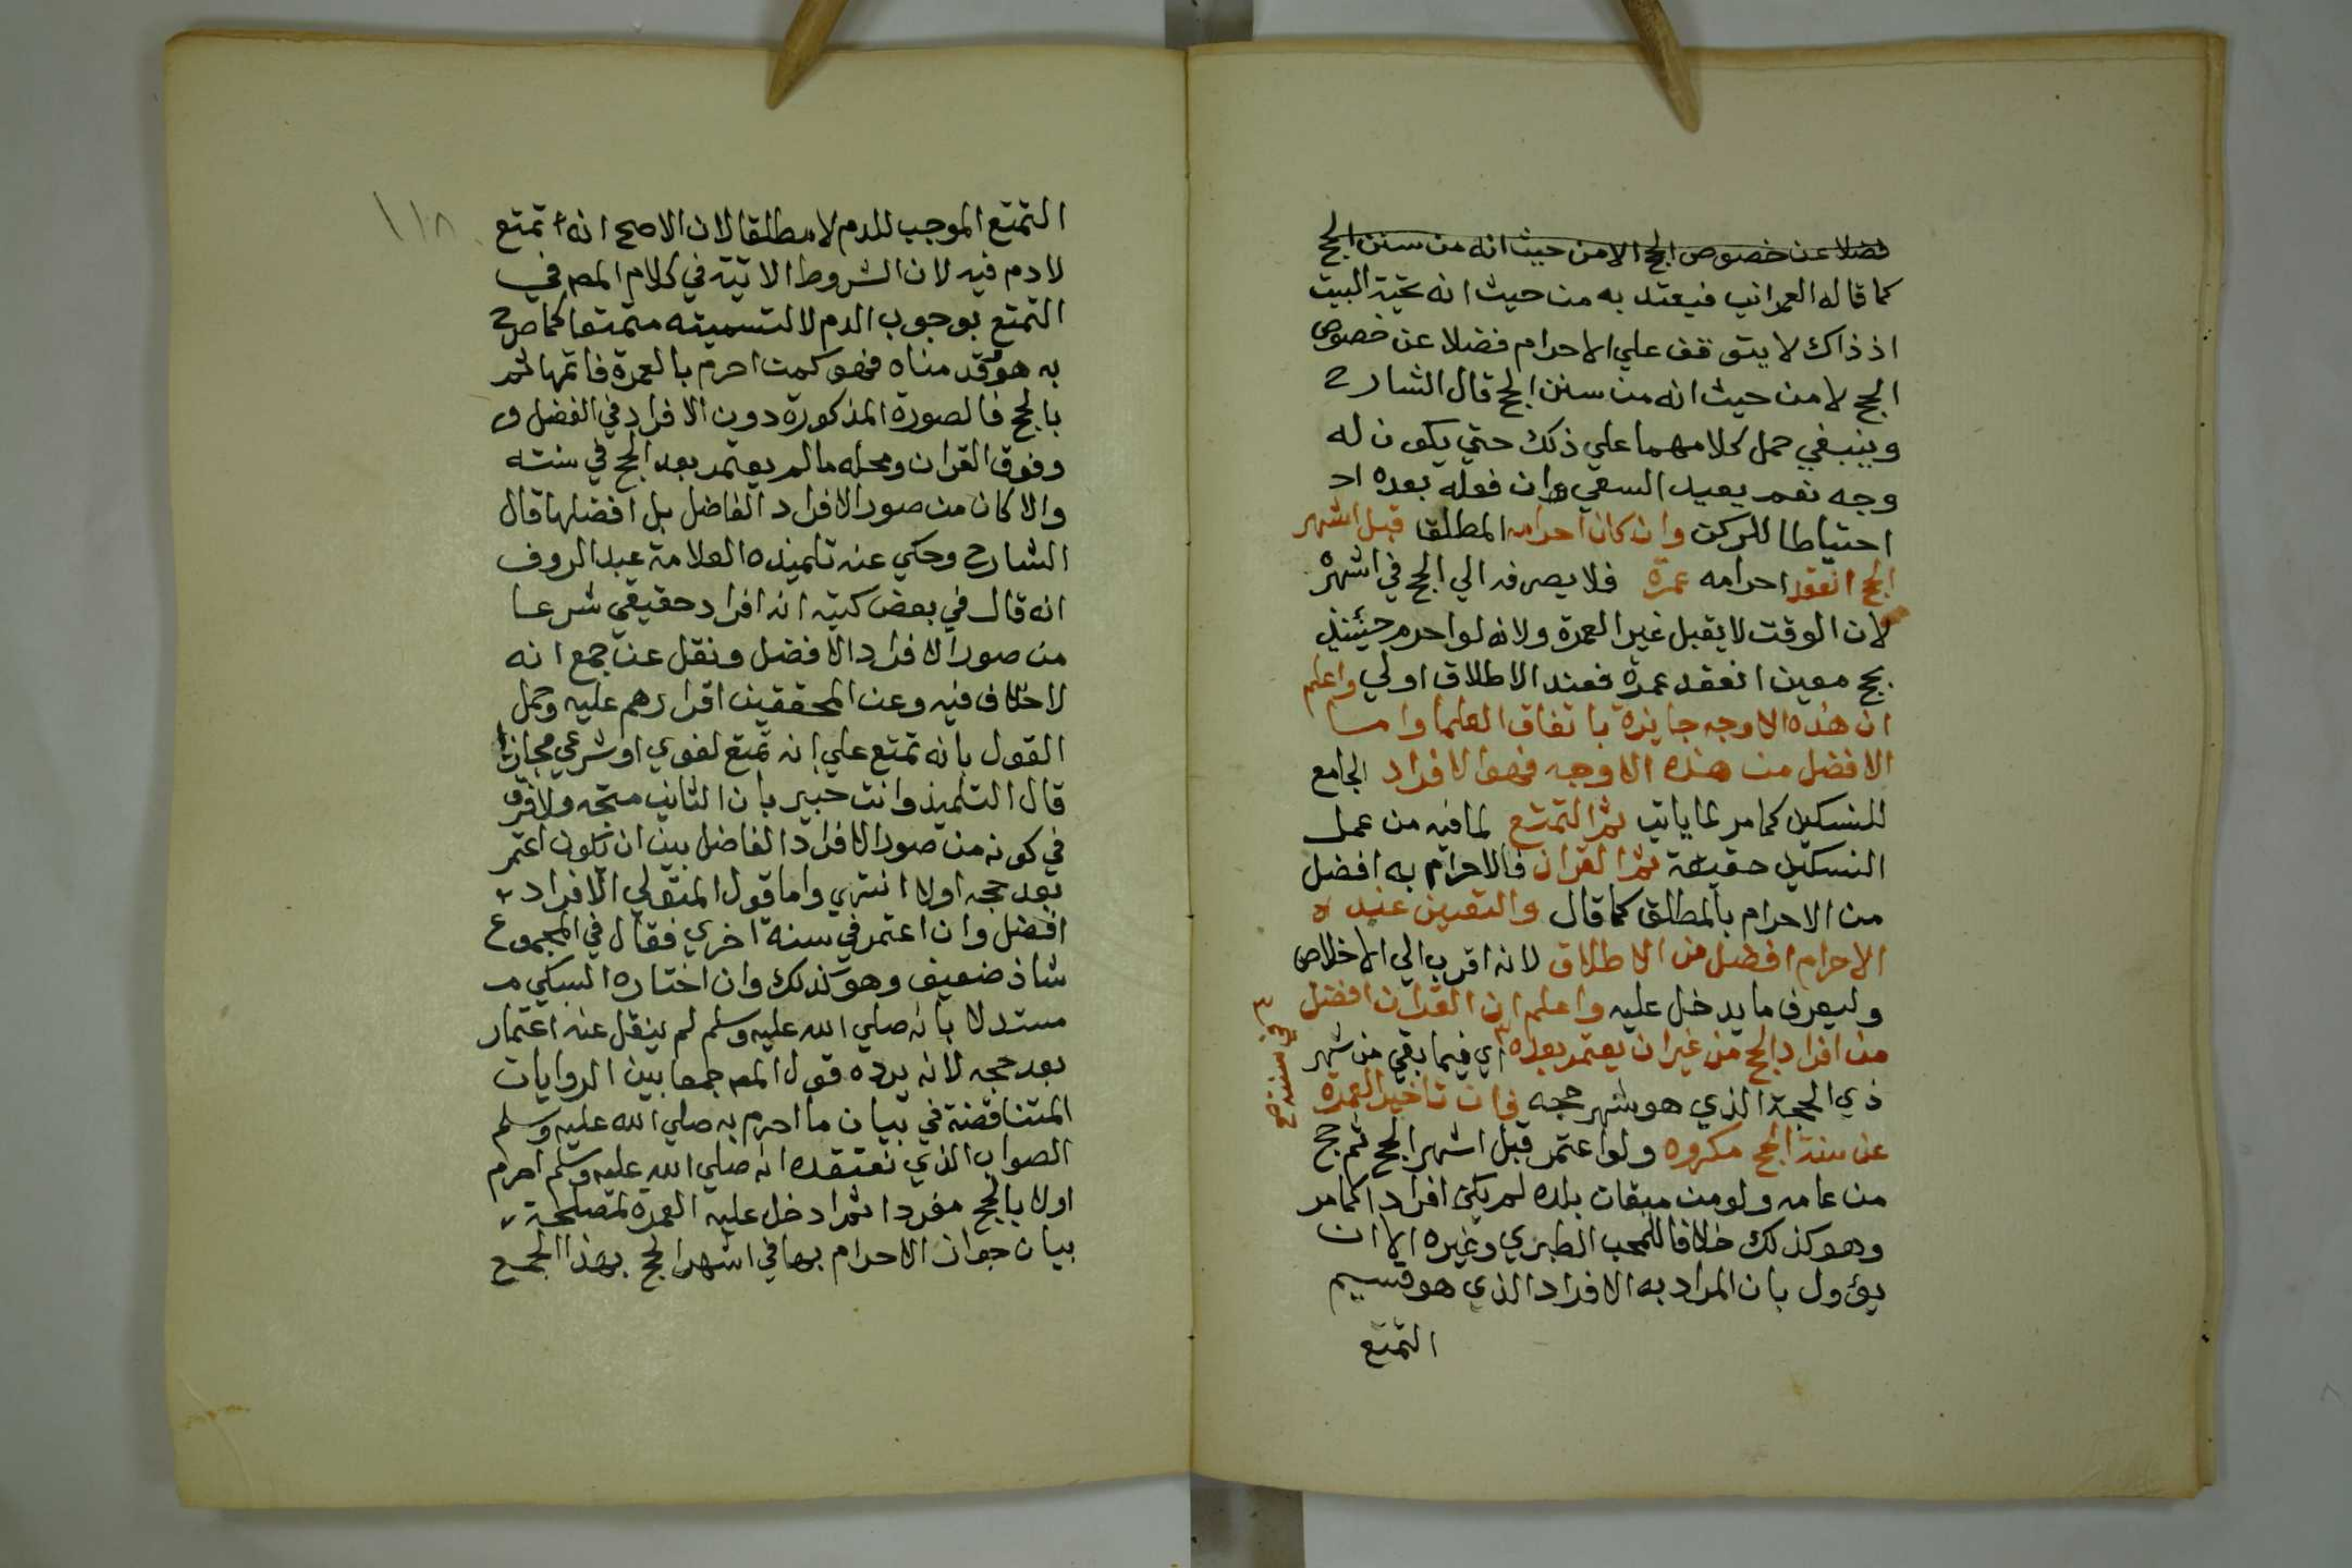 فضلا عن خصوص الحج الا من حيث انه من سنن الحج
كما قاله العمراني فيعتد به من حيث انه تحية البيت
اذ ذاك لا يتوقف علي الاحرام فضلا عن خصوص
الحج لا من حيث انه من سنن الحج قال الشارح
وينبغي حمل كلامهما علي ذلك حتي يكون له
وجه نعم يعيد السعي وان فعله بعده اد
احتياطا للركن وان كان احرامه المطلقا قبل اشهر
الحج انعقد احرامه عمرة فلا يصرفه الي الحج في اشهره
لان الوقت لا يقبل غير العمرة ولانه لو احرم حينئذ
بحج معين انعقد عمرة فعند الاطلاق اولي واعلم
ان هذه الاوجه جايزة باتفاق العلما واما
الافضل من هذه الاوجه فهو الافراد الجامع
للنسكين كما مر لما ياتي ثم التمتع لما فيه من عمل
النسكين حقيقة ثم القران فالاحرام به افضل
من الاحرام بالمطلق كما قال والتعيين عند
الاحرام افضل من الاطلاق لانه اقرب الي الاخلاص
وليعرف ما يدخل عليه واعلم ان القران افضل
من افراد الحج من غير ان يعتمر بعده اي فيما بقي من شهر
في سنته صح
ذي الحجة الذي هو شهر حجه فان تاخير العمرة
عن سنة الحج مكروه ولو اعتمر قبل اشهر الحج ثم حج
من عامه ولو من ميقات بلده لم يكن افرادا كما مر
وهو كذلك خلافا للمحب الطبري وغيره الا ان
يؤول بان المراد به الافراد الذي هو قسيم
التمتع
١١٨
التمتع الموجب للدم لا مطلقا لان الاصح انه تمتع
لا دم فيه لان الشروط الاتية في كلام المص في
التمتع بوجوب الدم لا لتسميته متمتعا كما صرح
به هو وقدمناه فهو كمن احرم بالعمرة فاتمها ثم
بالحج فالصورة المذكورة دون الافراد في الفضل و
وفوق القران ومحله ما لم يعتمر بعد الحج في سنته
والا كان من صور الافراد الفاضل بل افضلها قال
الشارح وحكي عنه تلميذه العلامة عبد الروف
انه قال في بعض كتبه انه افراد حقيقي شرعا
من صور الافراد الافضل ونقل عن جمع انه
لا خلاف فيه وعن المحققين اقرارهم عليه وحمل
القول بانه تمتع علي انه تمتع لغوي او شرعي مجازا
قال التلميذ وانت خبير بان الثاني متجه ولا فرق
في كونه من صور الافراد الفاضل بين ان يكون اعتمر
بعد حجه اولا انتهي واما قول المتولي الافراد
افضل وان اعتمر في سنة اخري فقال في المجموع
شاذ ضعيف وهو كذلك وان اختاره السبكي
مستدلا بانه صلي الله عليه وسلم لم ينقل عنه اعتمار
بعد حجه لانه يرده قول المص جمعا بين الروايات
المتناقضة في بيان ما احرم به صلي الله عليه وسلم
الصواب الذي نعتقده انه صلي الله عليه وسلم احرم
اولا بالحج مفردا ثم ادخل عليه العمرة لمصلحة
بيان جواز الاحرام بها في اشهر الحج بهذا الجمع